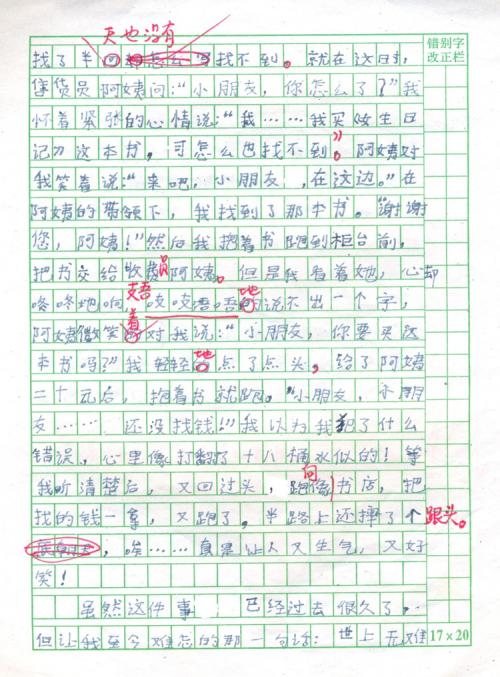 天也没有
错别字
改正栏
找了半 找不到。就在这时,
售货员阿姨问:“小朋友,你怎么了?”我
怀着紧张的心情说:“我……我买《女生日
记》这本书,可怎么也找不到。”阿姨对
我笑着说:“来吧,小朋友,在这边。”在
阿姨的带领下,我找到了那本书。“谢谢
您,阿姨!”然后我抱着书跑到柜台前,
把书交给收费员阿姨。但是我看着她,心却
咚咚地响,支支吾吾地说不出一个字,
阿姨微笑着对我说:“小朋友,你要买这
本书吗?”我轻轻地点了点头。给了阿姨
二十元后,抱着书就跑。“小朋友,小朋
友……还没找钱!”我以为我犯了什么
错误,心里像打翻了十八桶水似的!等
我听清楚后,又回过头,跑向书店,把
找的钱一拿,又跑了。半路上还摔了个跟头。
唉……真是让人又生气,又好
笑!
虽然这件事已经过去很久了,
但让我至今难忘的那一句话:世上无难
17×20